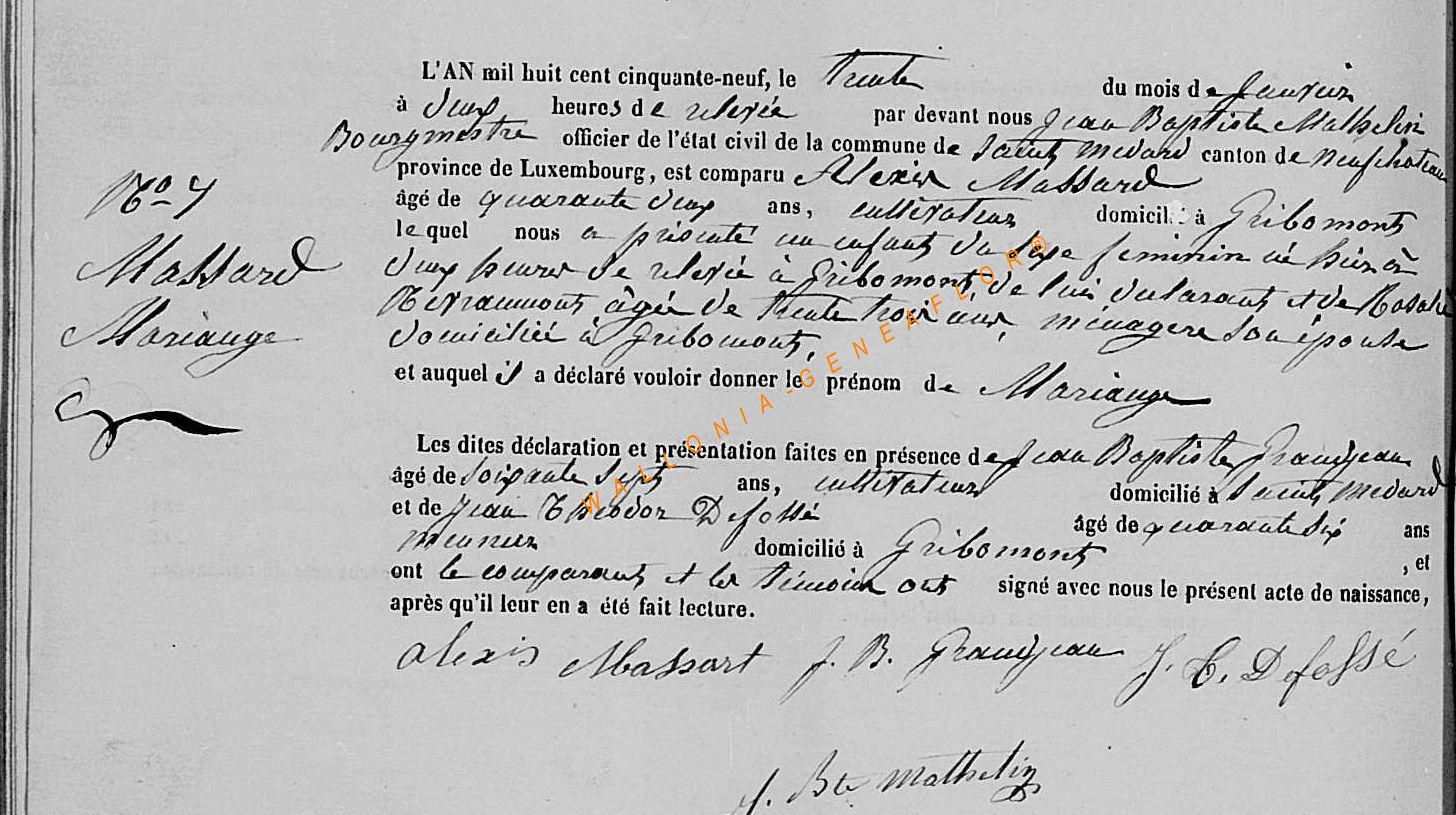 L'AN mil huit cent cinquante-neuf, le trente du mois de Janvier
à deux heures de relevée par devant nous Jean Baptiste Mathelin
Bourgmestre officier de l'état civil de la commune de Saint Medard canton de Neufchateau
province de Luxembourg, est comparu Alexis Massard
âgé de quarante deux ans, cultivateur domicilié à Gribomont
lequel nous a présenté un enfant du sexe feminin né hier à
deux heures de relevée à Gribomont, de lui déclarant et de Rosalie
âgée de trente trois ans, ménagère son épouse
domiciliée à Gribomont,
et auquel il a déclaré vouloir donner le prénom de Mariange
Les dites déclaration et présentation faites en présence de Jean Baptiste Grandjean
âgé de soixante sept ans, cultivateur domicilié à Saint Medard
et de Jean Théodor Defossé âgé de quarante six ans
meunier domicilié à Gribomont , et
ont le comparant et les témoins ont signé avec nous le présent acte de naissance,
après qu'il leur en a été fait lecture.
No 7
Massard
Mariange
alexis Massart J. B. Grandjean J. T. Defossé
J. Bte Mathelin
WALLONIA-GENEAFLOR®